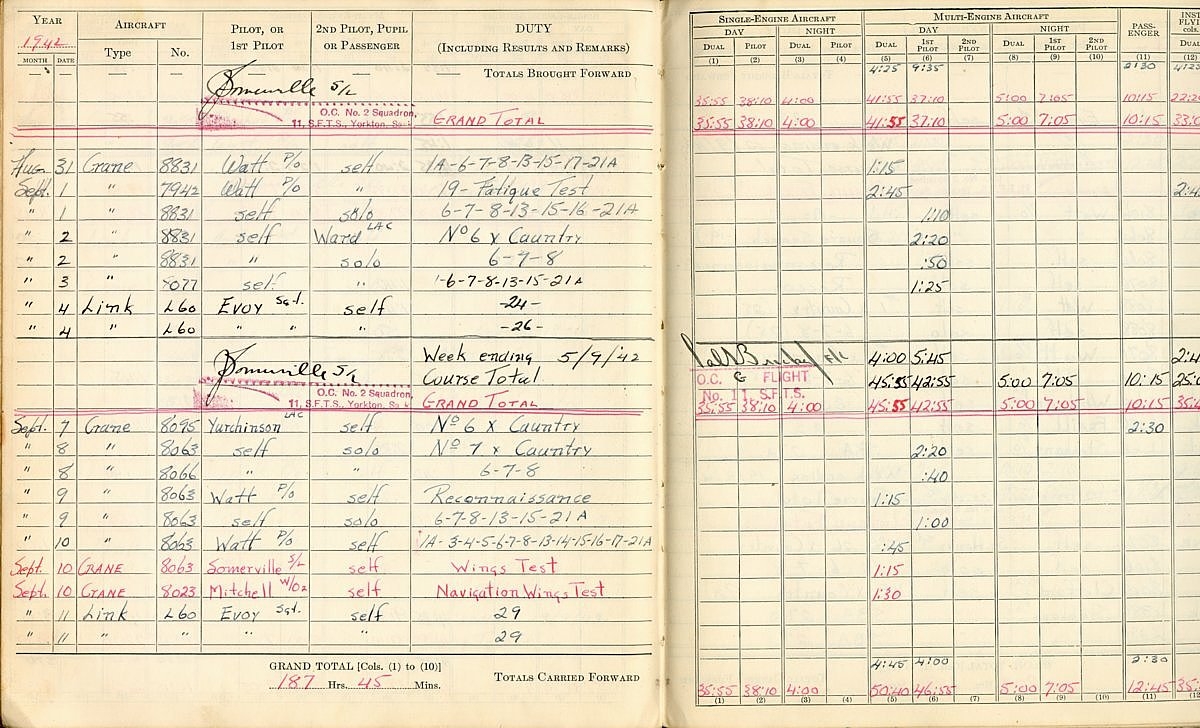 YEAR AIRCRAFT PILOT, OR 1ST PILOT 2ND PILOT, PUPIL OR PASSENGER DUTY (INCLUDING RESULTS AND REMARKS) SINGLE-ENGINE AIRCRAFT MULTI-ENGINE AIRCRAFT PASS-ENGER INST FLYI cols.
1942 Type No. DAY NIGHT DAY NIGHT
MONTH DATE DUAL PILOT DUAL PILOT DUAL 1ST PILOT 2ND PILOT DUAL 1ST PILOT 2ND PILOT
(1) (2) (3) (4) (5) (6) (7) (8) (9) (10) (11) (12)
— — — — — — TOTALS BROUGHT FORWARD 4:25 9:35 2:30
Somerville S/L
O.C. No. 2 Squadron, 35:55 38:10 4:00 41:55 37:10 5:00 7:05 10:15
11, S.F.T.S., Yorkton, Sask GRAND TOTAL 35:55 38:10 4:00 41:55 37:10 5:00 7:05 10:15
Aug. 31 Crane 8831 Watt P/O self 1A-6-7-8-13-15-17-21A 1:15
Sept. 1 " 7942 Watt P/O " 19-Fatigue Test 2:45
" 1 " 8831 self solo 6-7-8-13-15-16-21A 1:10
" 2 " 8831 self Ward LAC Nº 6 x Country 2:20
" 2 " 8831 " solo 6-7-8 :50
" 3 " self " 6-7-8-13-15-21A 1:25
" 4 Link L60 Evoy Sgt. self -24-
" 4 " L60 " " " -26-
Week ending 5/9/42 4:00 5:45
Somerville S/L Course Total O.C. G FLIGHT 45:55 42:55 5:00 7:05 10:15
O.C. No. 2 Squadron, No. 11, S.F.T.S.
11, S.F.T.S., Yorkton, Sask GRAND TOTAL 35:55 38:10 4:00 45:55 42:55 5:00 7:05 10:15
Sept. 7 Crane 8095 Yurchinson LAC self Nº 6 x Country 2:30
" 8 " 8063 self solo Nº 7 x Country 2:20
" 8 " 8066 " " 6-7-8 :40
" 9 " 8063 Watt P/O self Reconnaissance 1:15
" 9 " 8063 self solo 6-7-8-13-15-21A 1:00
" 10 " 8063 Watt P/O self 1A-3-4-5-6-7-8-13-14-15-16-17-21A :45
Sept. 10 CRANE 8063 Somerville S/L self Wings Test 1:15
Sept. 10 CRANE 8023 Mitchell W/O2 self Navigation Wings Test 1:30
" 11 Link L60 Evoy Sgt. self 29
" 11 " " " " 29
GRAND TOTAL [Cols. (1) to (10)] 4:45 4:00 2:30
187 Hrs. 45 Mins. TOTALS CARRIED FORWARD 35:55 38:10 4:00 50:40 46:55 5:00 7:05 12:45
(1) (2) (3) (4) (5) (6) (7) (8) (9) (10) (11) (12)